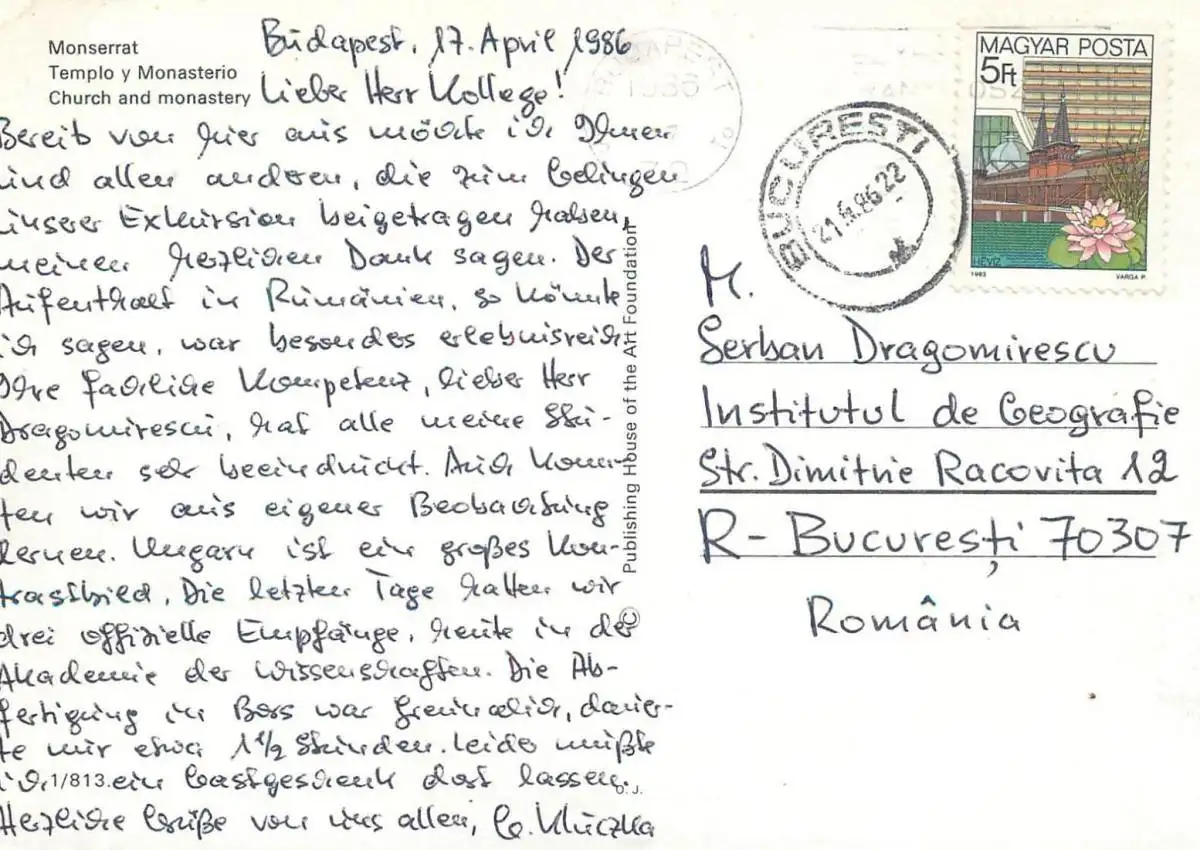 Monserrat
Templo y Monasterio
Church and monastery
Budapest, 17. April 1986
Lieber Herr Kollege!
Bereits von hier aus möchte ich Ihnen
und allen anderen, die zum Gelingen
unserer Exkursion beigetragen haben,
meinen herzlichen Dank sagen. Der
Aufenthalt in Rumänien, so könnte
ich sagen, war besonders erlebnisreich
Ihre fachliche Kompetenz, lieber Herr
Dragomirescu, hat alle meine Stu-
denten sehr beeindruckt. Auch konn-
ten wir aus eigener Beobachtung
lernen. Ungarn ist ein großes Kon-
trastbild. Die letzten Tage hatten wir
drei offizielle Empfänge, heute in der
Akademie der Wissenschaften. Die Ab-
fertigung in Bors war freundlich, dauer-
te nur etwa 1 1/2 Stunden. Leider mußte
ich ein Gastgeschenk dort lassen.
1/813.
D. J.
Herzliche Grüße von uns allen, G. Kluczka
Publishing House of the Art Foundation
©
MAGYAR POSTA
5Ft
HÉVIZ
1983
VARGA P.
BUCUREȘTI
21.4.86.22
BUDAPEST
M.
Serban Dragomirescu
Institutul de Geografie
Str. Dimitrie Racovita 12
R- București 70307
România